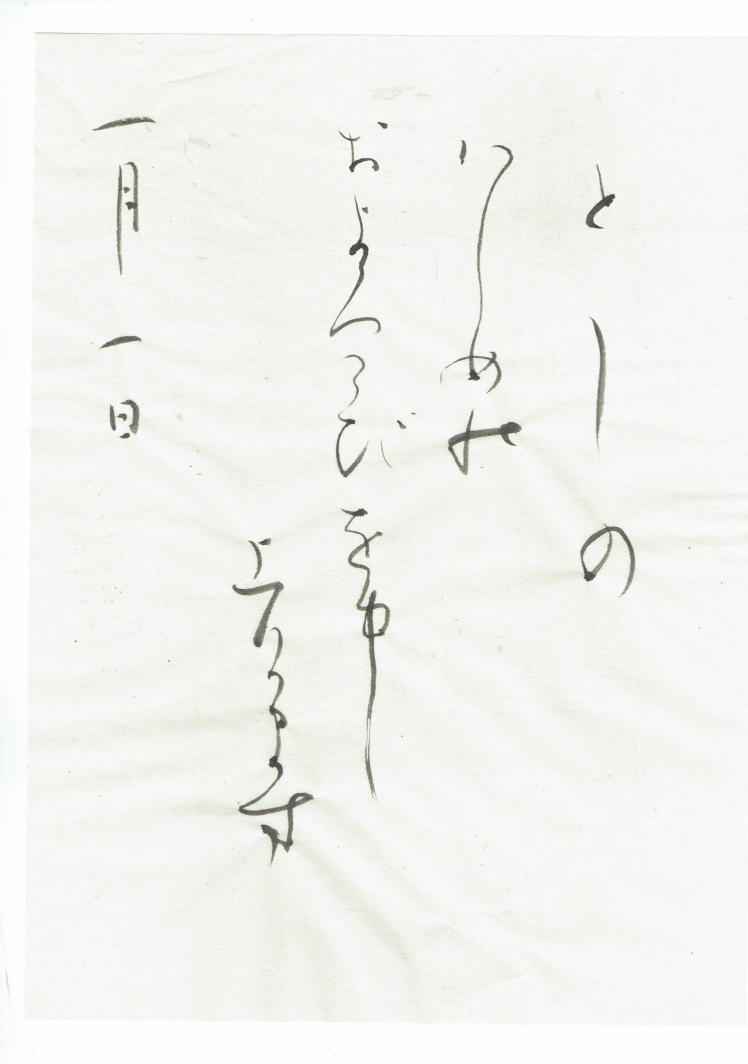 としの
はしめの
およろこびを申し
上けます
一月一日